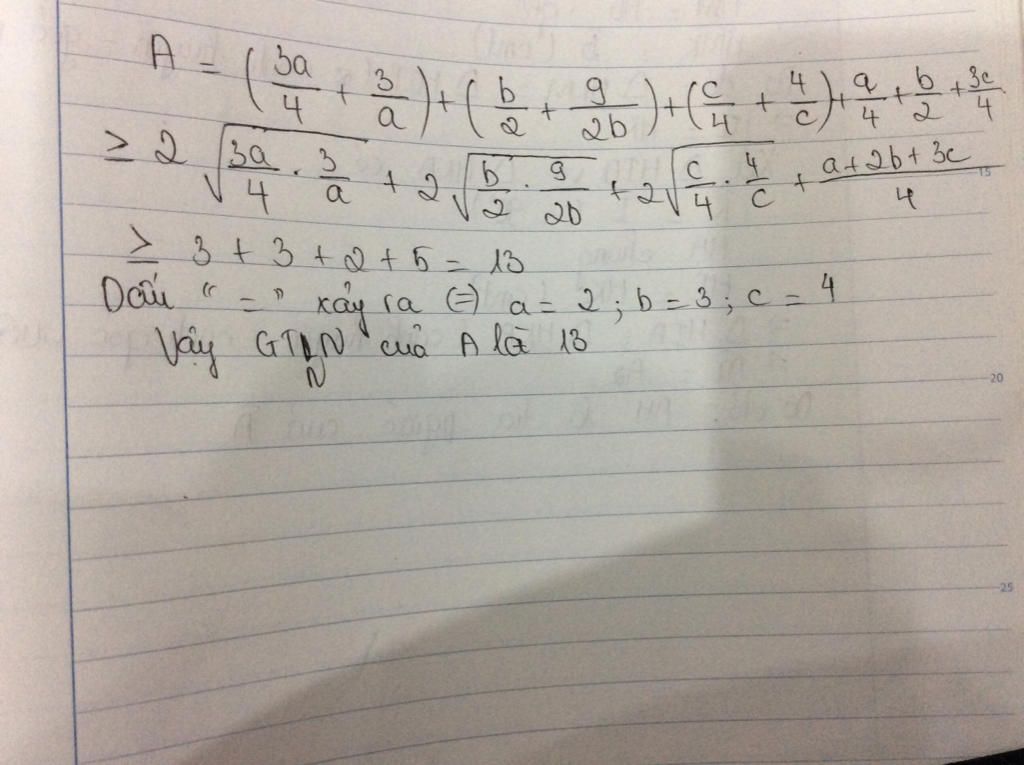 A = (3a/4 + 3/a) + (b/2 + 9/2b) + (c/4 + 4/c) + a/4 + b/2 + 3c/4
≥ 2√(3a/4 · 3/a) + 2√(b/2 · 9/2b) + 2√(c/4 · 4/c) + (a+2b+3c)/4
≥ 3 + 3 + 2 + 5 = 13
Dấu " = " xảy ra (=) a = 2 ; b = 3 ; c = 4
Vậy GTNN của A là 13
15
20
25